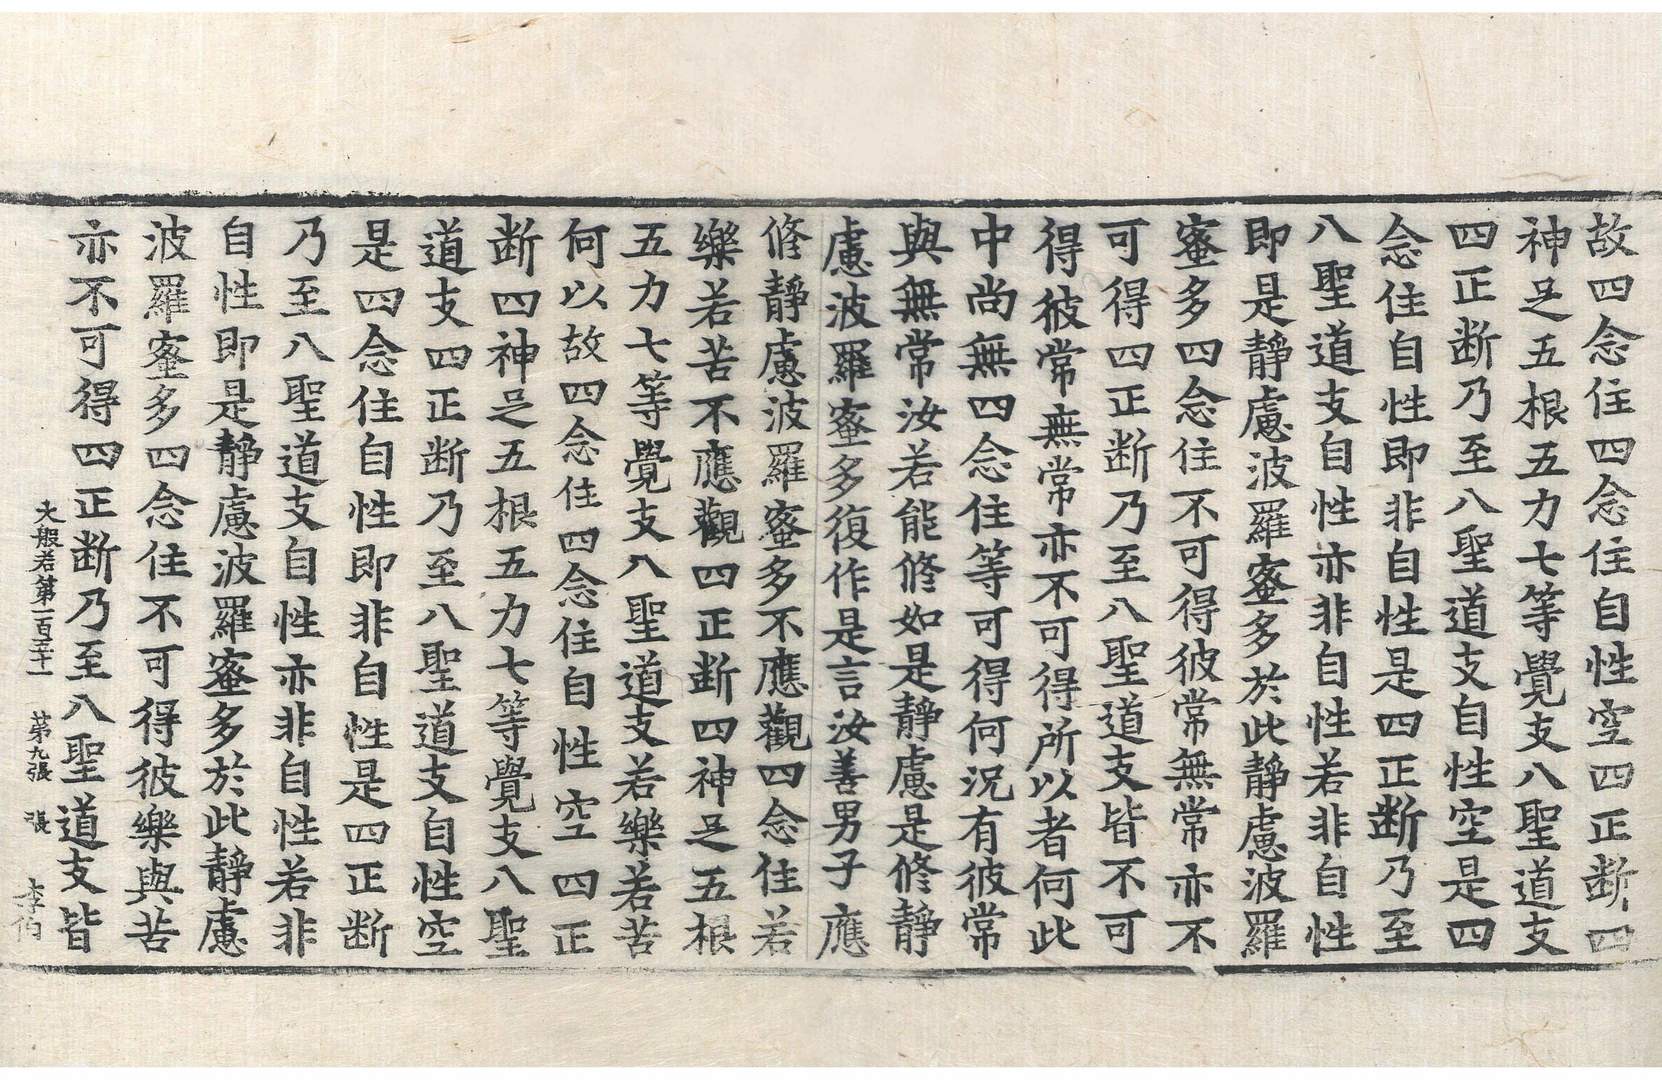 故四念住四念住自性空四正断四
神足五根五力七等覺支八聖道支
四正断乃至八聖道支自性空是四
念住自性即非自性是四正断乃至
八聖道支自性亦非自性若非自性
即是靜慮波羅蜜多於此靜慮波羅
蜜多四念住不可得彼常無常亦不
可得四正断乃至八聖道支皆不可
得彼常無常亦不可得所以者何此
中尚無四念住等可得何況有彼常
與無常汝若能修如是靜慮是修靜
慮波羅蜜多復作是言汝善男子應
修靜慮波羅蜜多不應觀四念住若
樂若苦不應觀四正断四神足五根
五力七等覺支八聖道支若樂若苦
何以故四念住四念住自性空四正
断四神足五根五力七等覺支八聖
道支四正断乃至八聖道支自性空
是四念住自性即非自性是四正断
乃至八聖道支自性亦非自性若非
自性即是靜慮波羅蜜多於此靜慮
波羅蜜多四念住不可得彼樂與苦
亦不可得四正断乃至八聖道支皆
大般若第一百五十一 第九張 張 李伯